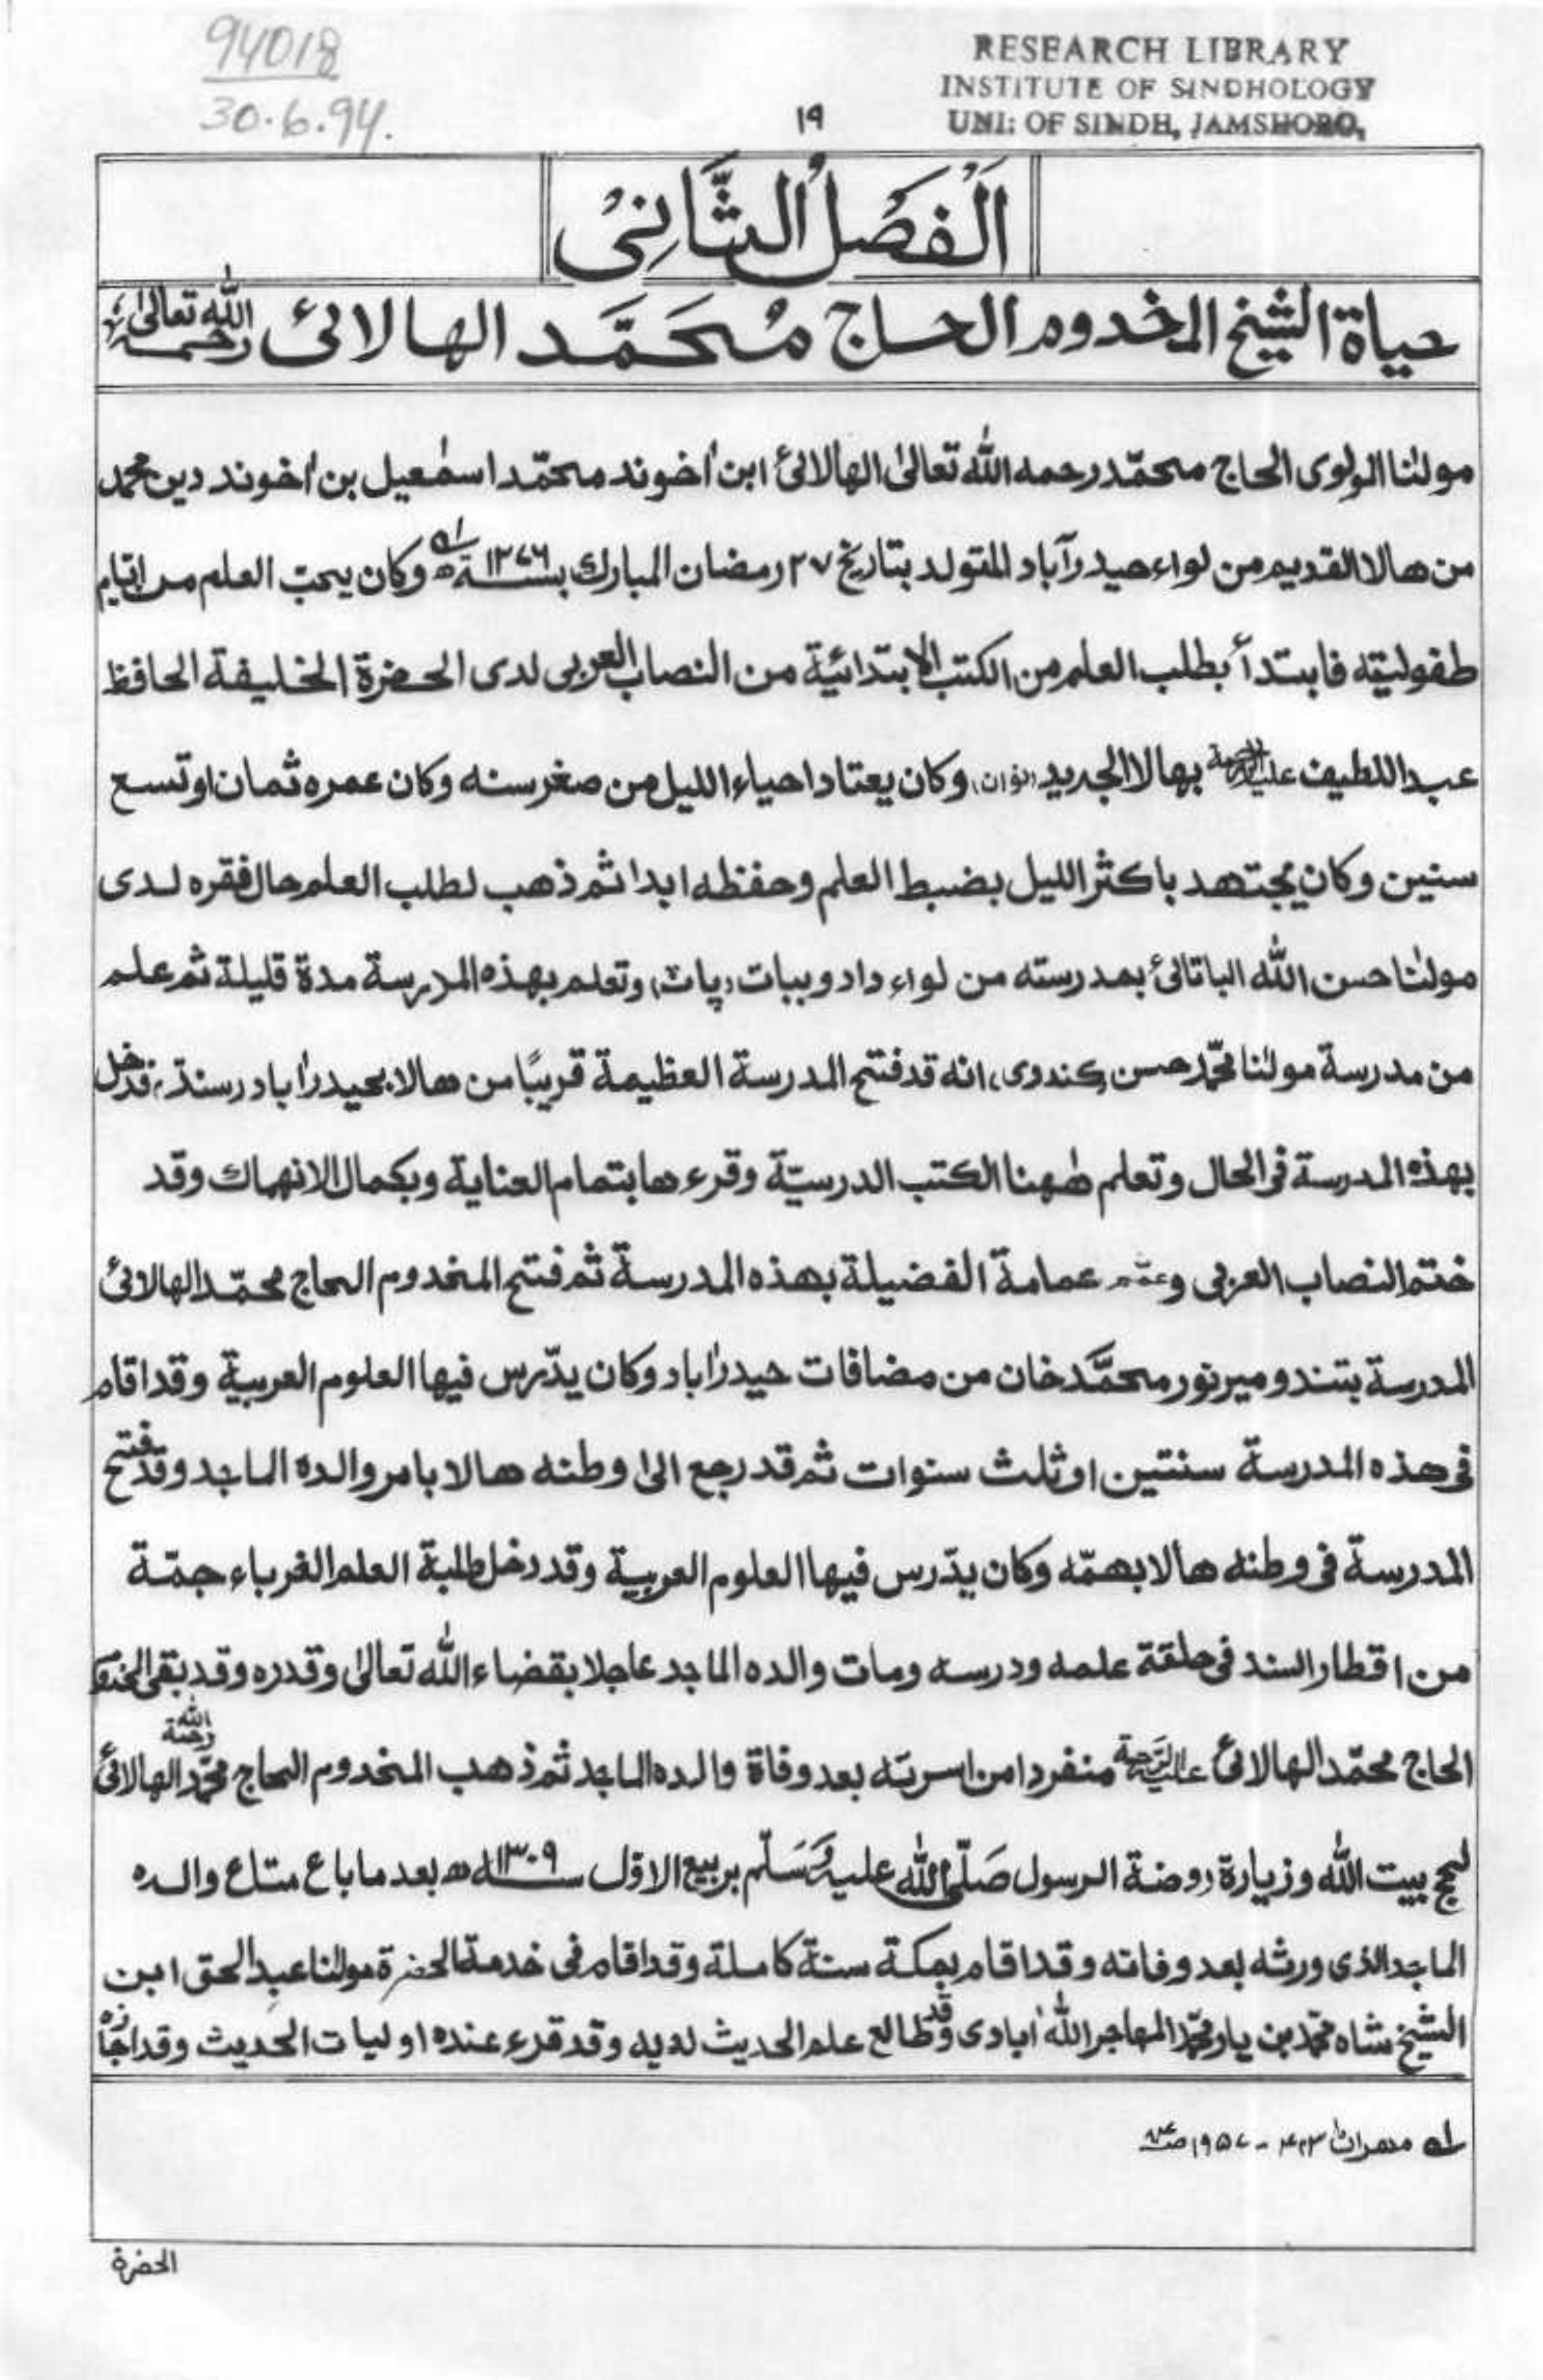 94018
30.6.94.
RESEARCH LIBRARY
INSTITUTE OF SINDHOLOGY
UNI: OF SINDH, JAMSHORO,
١٩
اَلْفَصْلُ الثَّانِیْ
حیاة الشیخ المخدوم الحاج مُحَمَّد الهالائی رحمہ اللہ تعالیٰ
مولٰنا المولوی الحاج محمّد رحمه اللّٰه تعالیٰ الهالائی ابن اٰخوند محمّد اسمٰعیل بن اٰخوند دین محمد
من هالا القدیم من لواء حیدرآباد المتولد بتاریخ ٢٧ رمضان المبارك بسنة ١٢٧٦ھ وکان یحبّ العلم من ایّام
طفولیتِه فابتدأ بطلب العلم من الکتب الابتدائیة من النصاب العربی لدی الحضرة الخلیفة الحافظ
عبد اللطیف علیه الرحمة بهالا الجدید (نوان) وکان یعتاد احیاء اللیل من صغر سنه وکان عمره ثمان او تسع
سنین وکان یجتهد باکثر اللیل بضبط العلم وحفظه ابدا ثم ذهب لطلب العلم حال فقره لدی
مولٰنا حسن اللّٰه الباتائی بمدرسته من لواء دادو ببات (پاٽ) وتعلم بهذه المدرسة مدة قلیلة ثم علم
من مدرسة مولٰنا محمّد حسن (کندوی) انه قد فتح المدرسة العظیمة قریبًا من هالا بحیدراٰباد (سنڌ) فدخل
بهذه المدرسة فی الحال وتعلم هٰهنا الکتب الدرسیّة وقرء ها بتمام العنایة وبکمال الانهماك وقد
ختم النصاب العربی وعمّم عمامة الفضیلة بهذه المدرسة ثم فتح المخدوم الحاج محمّد الهالائی
المدرسة بتندو میر نور محمَّد خان من مضافات حیدراٰباد وکان یدّرس فیها العلوم العربیة وقد اقام
فی هذه المدرسة سنتین او ثلٰث سنوات ثم قد رجع الیٰ وطنه هالا بامر والده الماجد وقد فتح
المدرسة فی وطنه هالا بهمّه وکان یدّرس فیها العلوم العربیة وقد دخل طلبة العلم الغرباء جمّة
من اقطار السند فی حلقة علمه ودرسه ومات والده الماجد عاجلا بقضاء اللّٰه تعالیٰ وقدره وقد بقی المخدوم
الحاج محمّد الهالائی علیه الرَّحمة منفردا من اسریّه بعد وفاة والده الماجد ثم ذهب المخدوم الحاج محمّد الهالائی رحمة اللّٰه
لحج بیت اللّٰه وزیارة روضة الرسول صَلّی اللّٰه علیہ وَسَلّم بربیع الاوّل ١٣٠٩ھ بعد ما باع متاع والده
الماجد الذی ورثه بعد وفاته وقد اقام بمکة سنة کاملة وقد اقام فی خدمة الحضرة مولٰنا عبد الحق ابن
الشیخ شاه محمّد بن یار محمّد المهاجر اللّٰه اٰبادی وقد طالع علم الحدیث لدیه وقد قرء عنده اولیات الحدیث وقد اجازه
لہ مهراڻ ١٩٥٧
الحضرة